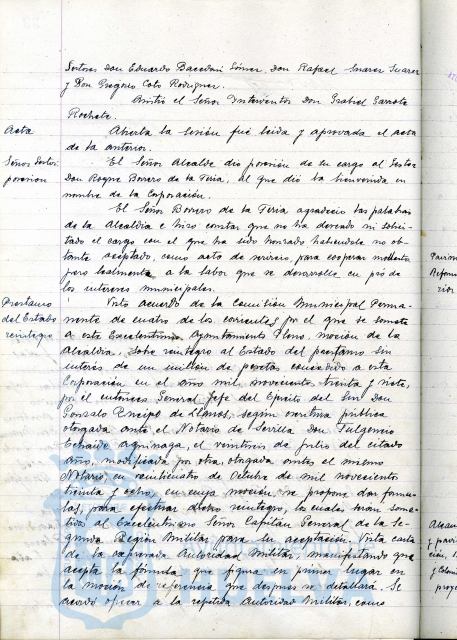 Señores Don Eduardo Bacedoni Gómez, Don Rafael Suarez Suarez
y Don Gregorio Coto Rodriguez.
Asistió el Señor Interventor Don Ysabel Garrote
Rochete.
Acta
Abierta la sesión fué leida y aprovada el acta
de la anterior.
Señor Gestor
posesion
El Señor Alcalde dio posesión de su cargo al Gestor
Don Roque Borrero de la Feria, al que dió la bienvenida en
nombre de la Corporación.
El Señor Borrero de la Feria agradeció las palabras
de la Alcaldia e hizo constar que no ha deseado ni solici-
tado el cargo con el que ha sido honrado habiendolo no obs-
tante aceptado, como acto de servicio, para cooperar modesta
pero lealmente a la labor que se desarrolla en pró de
los intereses municipales.
Prestamo
del Estado
reintegro
Visto acuerdo de la Comisión Municipal Perma-
nente de cuatro de los corrientes, por el que se somete
a este Excelentisimo Ayuntamiento Pleno, moción de la
Alcaldia, sobre reintegro al Estado del prestamo sin
interés de un millon de pesetas concedido a esta
Corporación en el año mil novecientos treinta y siete,
por el entonces General Jefe del Ejército del Sur Don
Gonzalo Queipo de Llanos, según escritura pública
otorgada ante el Notario de Sevilla Don Fulgencio
Echaide Aguinaga, el veintiseis de Julio del citado
año, modificada por otra, otorgada antes el mismo
Notario, en veinticuatro de Octubre de mil novecientos
treinta y ocho, en cuya moción se propone dos formu-
las, para efectuar dicho reintegro, las cuales seran some-
tidas al Excelentisimo Señor Capitán General de la Se-
gunda Región Militar para su aceptación. Vista carta
de la expresada Autoridad Militar, manifestando que
acepta la fórmula que figura en primer lugar en
la moción de referencia que despues se detallará. Se
acordó oficiar a la repetida Autoridad Militar, como